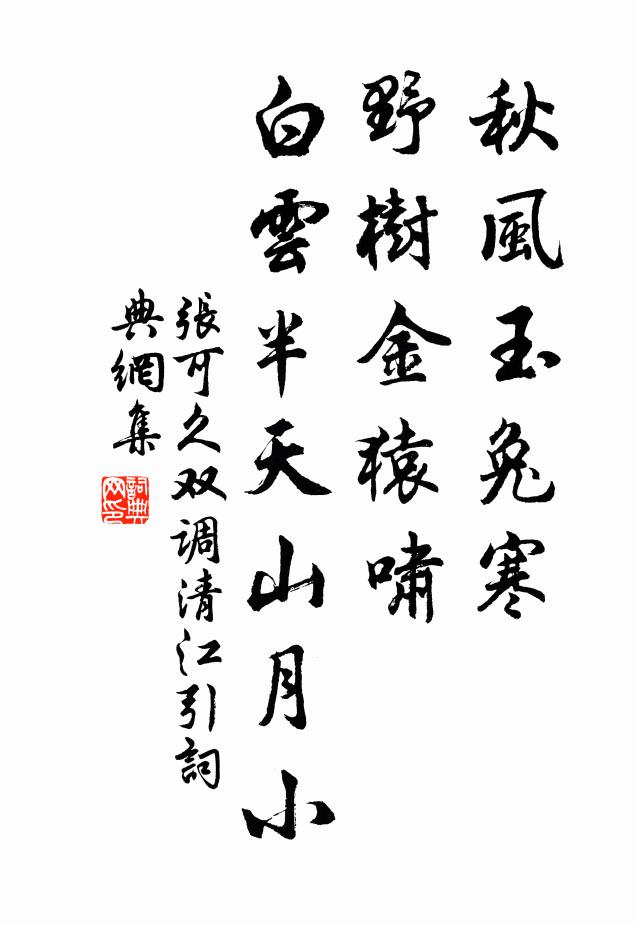 秋風玉兔寒
野樹金猿嘯
白雲半天山月小
張可久双调清江引詞
典網集
詞典网印